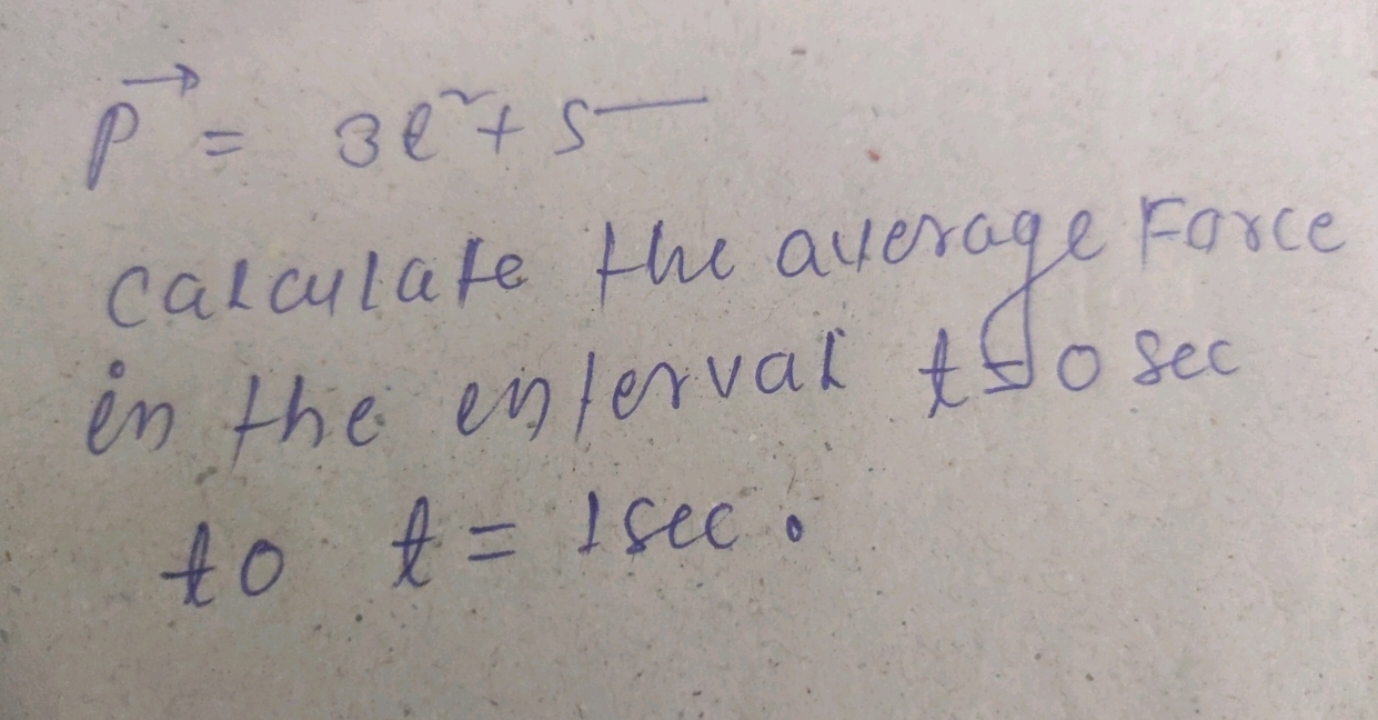 P⃗ = 3t² + 5 —
calculate the average Force
in the enterval t = 0 sec
to t = 1 sec.